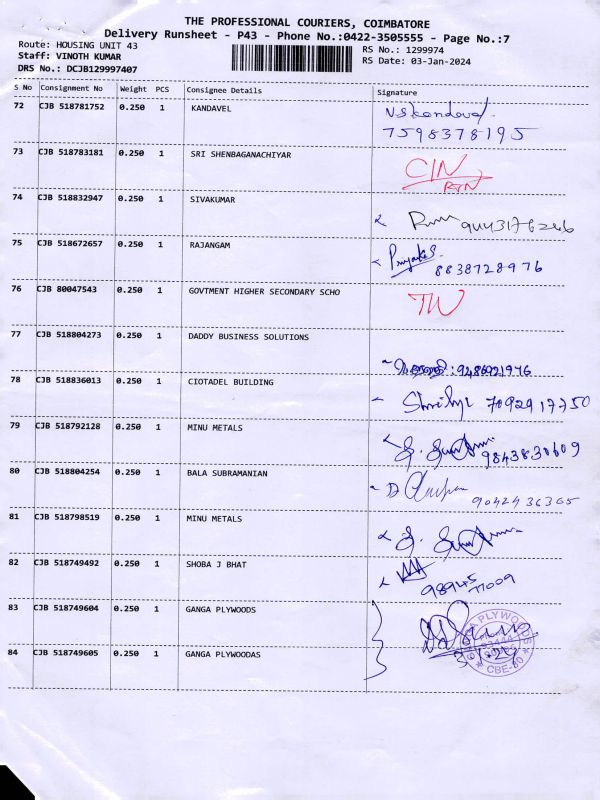 THE PROFESSIONAL COURIERS, COIMBATORE
Delivery Runsheet - P43 - Phone No.:0422-3505555 - Page No.:7
Route: HOUSING UNIT 43 RS No.: 1299974
Staff: VINOTH KUMAR RS Date: 03-Jan-2024
DRS No.: DCJB129997407
S No Consignment No Weight PCS Consignee Details Signature
72 CJB 518781752 0.250 1 KANDAVEL
7598378195
73 CJB 518783181 0.250 1 SRI SHENBAGANACHIYAR CIN
RTN
74 CJB 518832947 0.250 1 SIVAKUMAR
75 CJB 518672657 0.250 1 RAJANGAM
8838728976
76 CJB 80047543 0.250 1 GOVTMENT HIGHER SECONDARY SCHO
77 CJB 518804273 0.250 1 DADDY BUSINESS SOLUTIONS
78 CJB 518836013 0.250 1 CIOTADEL BUILDING
7092917750
79 CJB 518792128 0.250 1 MINU METALS
9843830609
80 CJB 518804254 0.250 1 BALA SUBRAMANIAN
9042436365
81 CJB 518798519 0.250 1 MINU METALS
82 CJB 518749492 0.250 1 SHOBA J BHAT
98945
77009
83 CJB 518749604 0.250 1 GANGA PLYWOODS
84 CJB 518749605 0.250 1 GANGA PLYWOODAS
GANGA PLYWOODS
CBE-